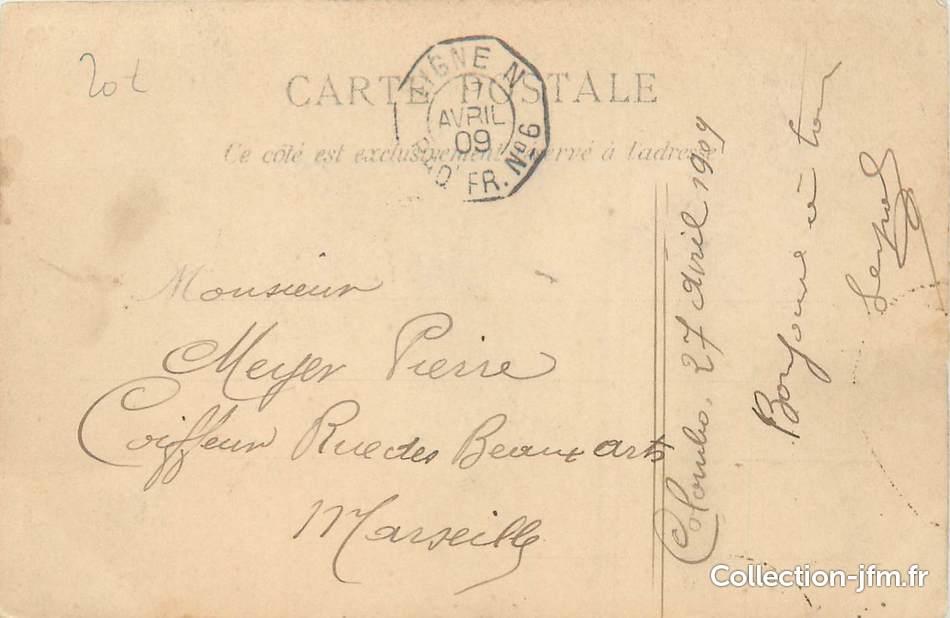 20 t
LIGNE N
7
AVRIL
09
PAQ. FR. No 6
CARTE POSTALE
Ce côté est exclusivement réservé à l'adresse
Monsieur
Meyer Pierre
Coiffeur Rue des Beaux arts
Marseille
Colombo, 27 avril 1909
Bonjour à tous
Collection-jfm.fr